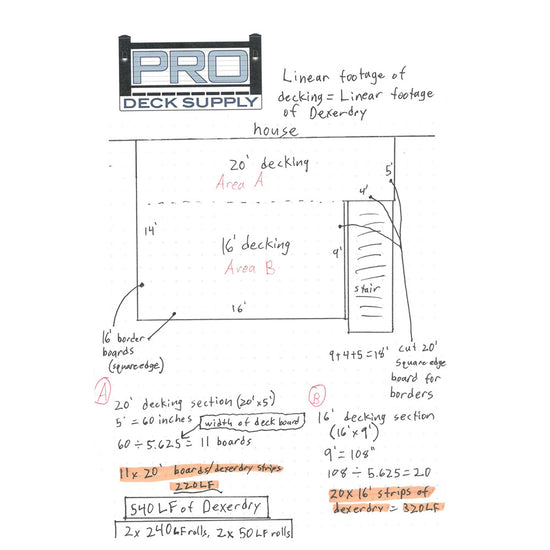 PRO
DECK SUPPLY
Linear footage of
decking = Linear footage
of Dexerdry
house
20' decking
Area A
5'
4'
14'
16' decking
Area B
9'
stair
16'
16' border
boards
(square edge)
9+4+5=18"
cut 20'
square edge
board for
borders
A
20' decking section (20'x5')
5' = 60 inches
width of deck board
60 ÷ 5.625 = 11 boards
11 x 20' boards/dexerdry strips
220LF
540 LF of Dexerdry
2 x 240 LF rolls, 2x 50 LF rolls
B
16' decking section
(16'x9')
9' = 108"
108 ÷ 5.625 = 20
20 x 16' strips of
dexerdry = 320LF